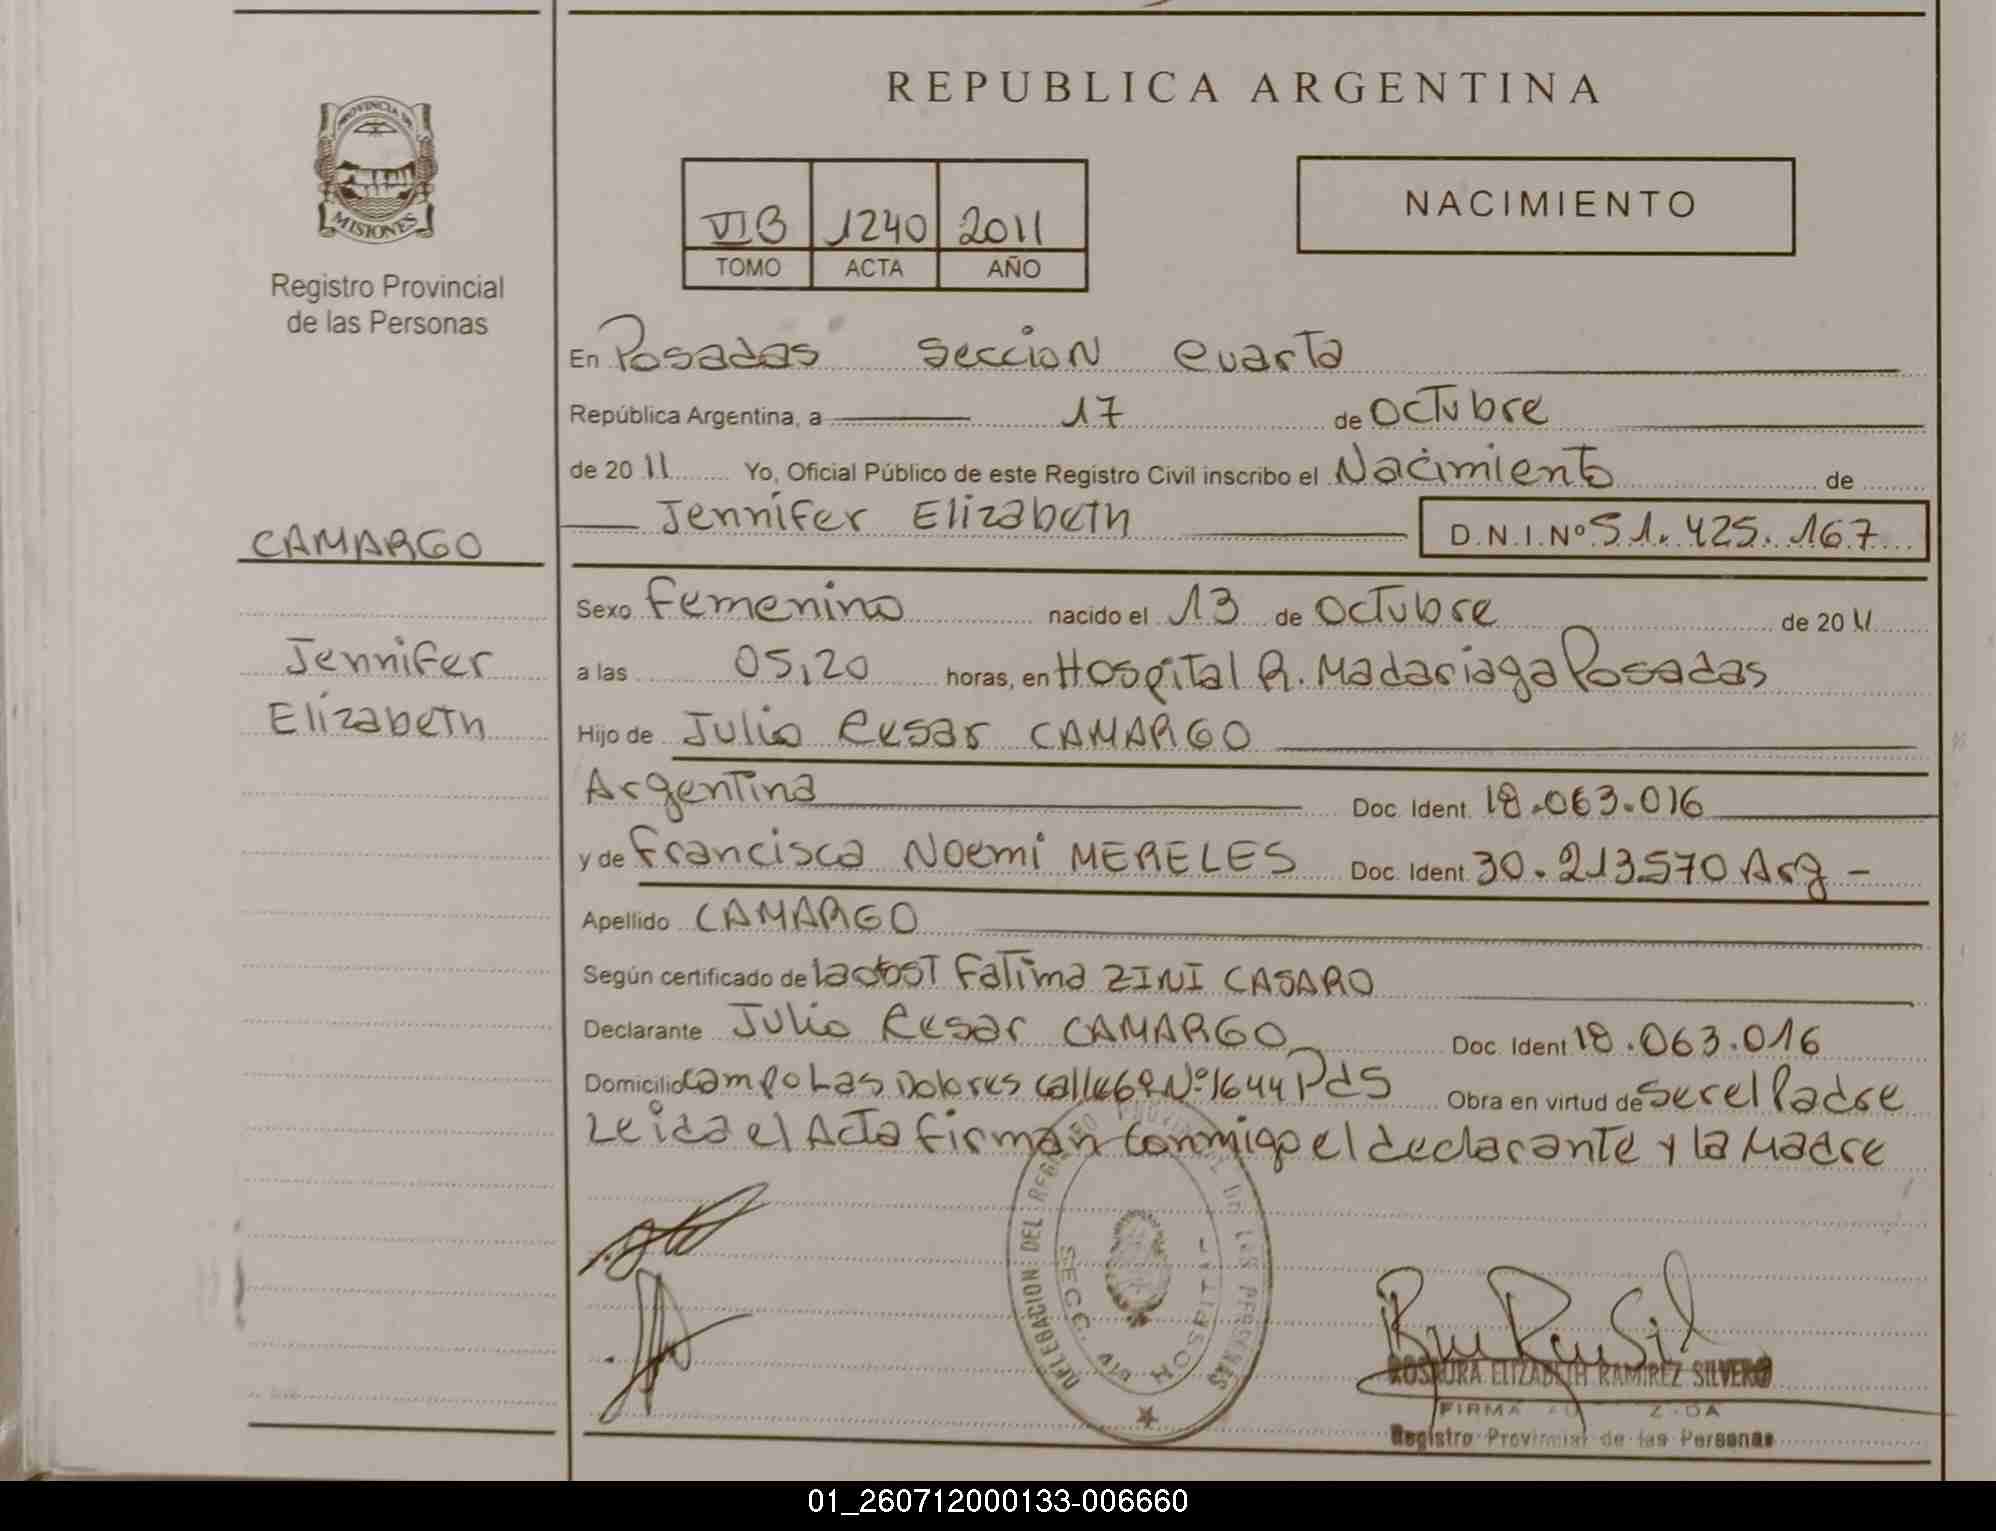 REPUBLICA ARGENTINA
PROVINCIA DE
MISIONES
Registro Provincial
de las Personas
VIB 1240 2011
TOMO ACTA AÑO
NACIMIENTO
En Posadas Seccion Cuarta
República Argentina, a 17 de Octubre
de 2011 Yo, Oficial Público de este Registro Civil inscribo el Nacimiento de
Jennifer Elizabeth D.N.I.Nº 51.425.167
CAMARGO
Jennifer
Elizabeth
Sexo femenino nacido el 13 de Octubre de 2011
a las 05,20 horas, en Hospital R. Madariaga Posadas
Hijo de Julio Cesar CAMARGO
Argentina Doc. Ident. 18.063.016
y de Francisca Noemi MERELES Doc. Ident. 30.213570 Arg -
Apellido CAMARGO
Según certificado de la obst Fatima ZINI CASARO
Declarante Julio Cesar CAMARGO Doc. Ident 18.063.016
Domicilio Campo Las Dolores Calle Nº 1644 Pds Obra en virtud de ser el Padre
Leida el Acta firman conmigo el declarante y la Madre
DELEGACION DEL REGISTRO PROVINCIAL DE LAS PERSONAS
SECC. HOSPITAL
ROSAURA ELIZABETH RAMIREZ SILVERO
FIRMA
Registro Provincial de las Personas
01_260712000133-006660